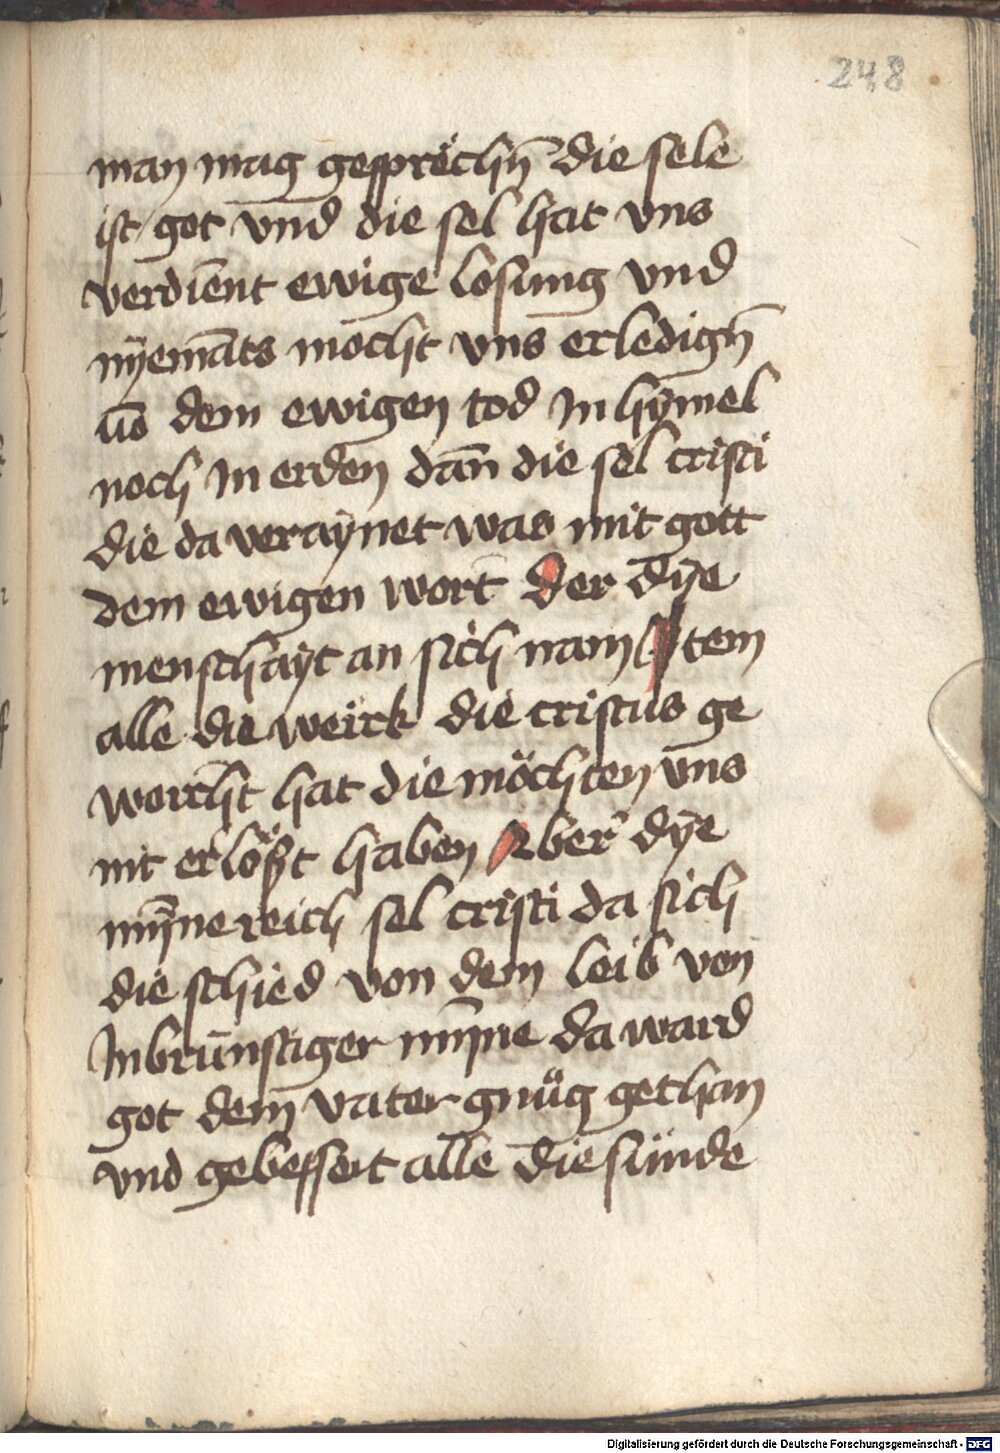 248
man mag gesprëchn̄ die sele
ist got vnd die sel hat vns
verdīent ewige losung vnd
nÿemāts möcht vns erledign̄
us dem ewigen tod In hӯmel
noch In erden dān die sel cristi
die da veraÿnet was mit gott
dem ewigen wort der dÿe
menschaÿt an sich nam Item
alle die werck die cristus ge
worcht hat die möchten vns
nit erlößt haben Aber dÿe
mӯnereich sel cristi da sich
die schied von dem leib von
Inbrūnstiger mӯne da ward
got dem vater gnůg gethan
vnd gebessert alle die sünde
Digitalisierung gefördert durch die Deutsche Forschungsgemeinschaft - DFG